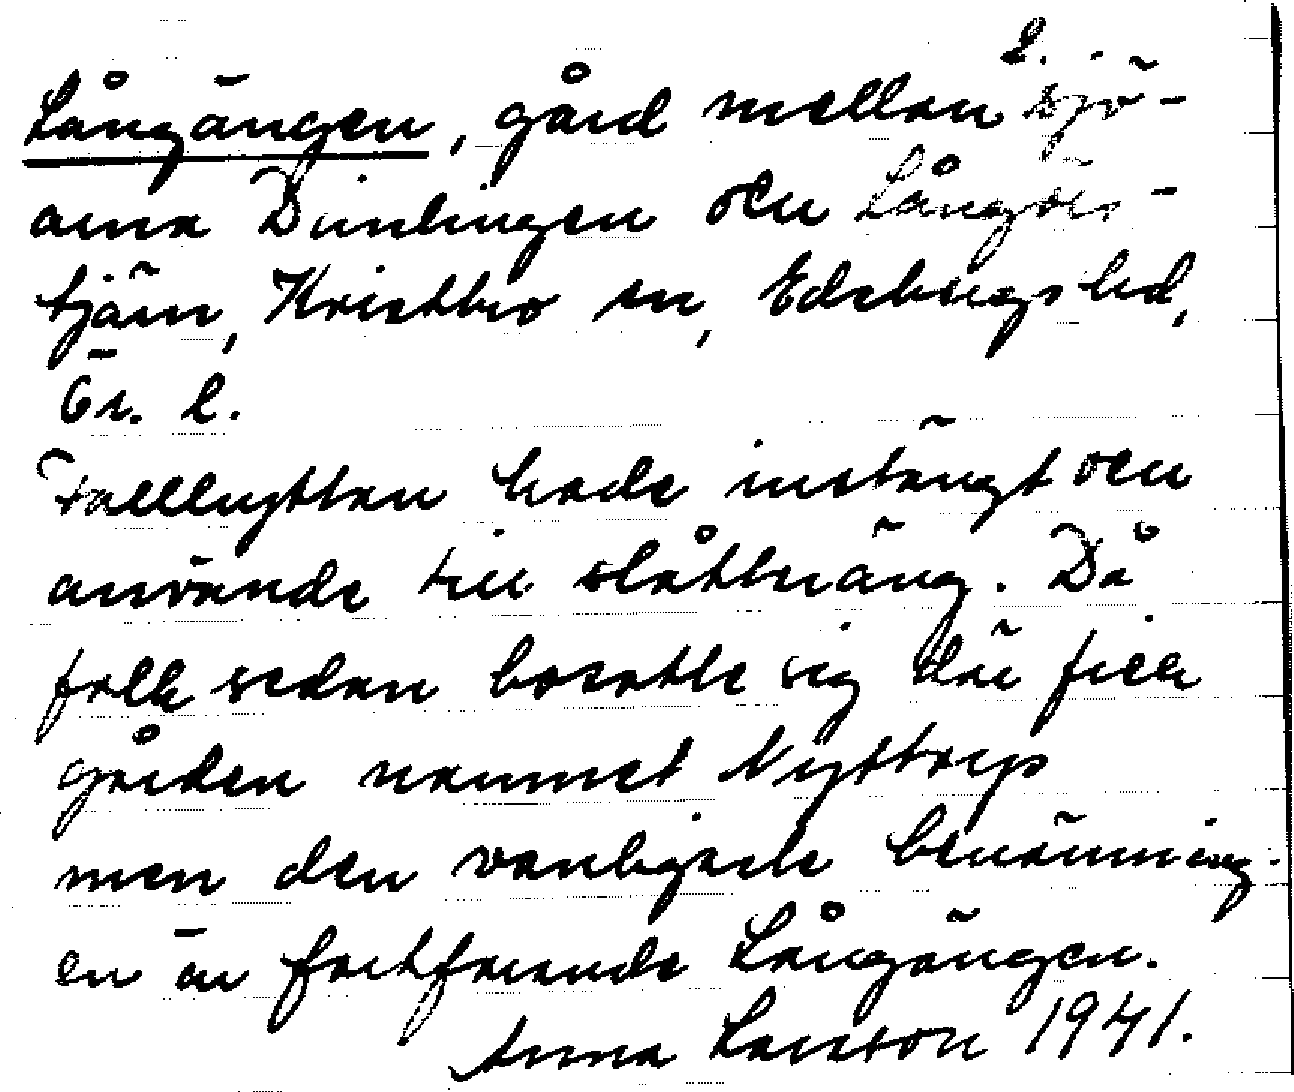 2.
Långängen, gård mellan sjö-
arna Dunlingen och Långörs-
tjärn, Kristbro sn, Edsbergs hd,
Ör. l.
Falllyttan hade instängt och
använde till slåttnäng. Då
folk sedan bosatte sig där fick
gården namnet Nyttorp
men den vanligaste benämning-
en är fortfarande Långängen.
Anna Larsson 1941.